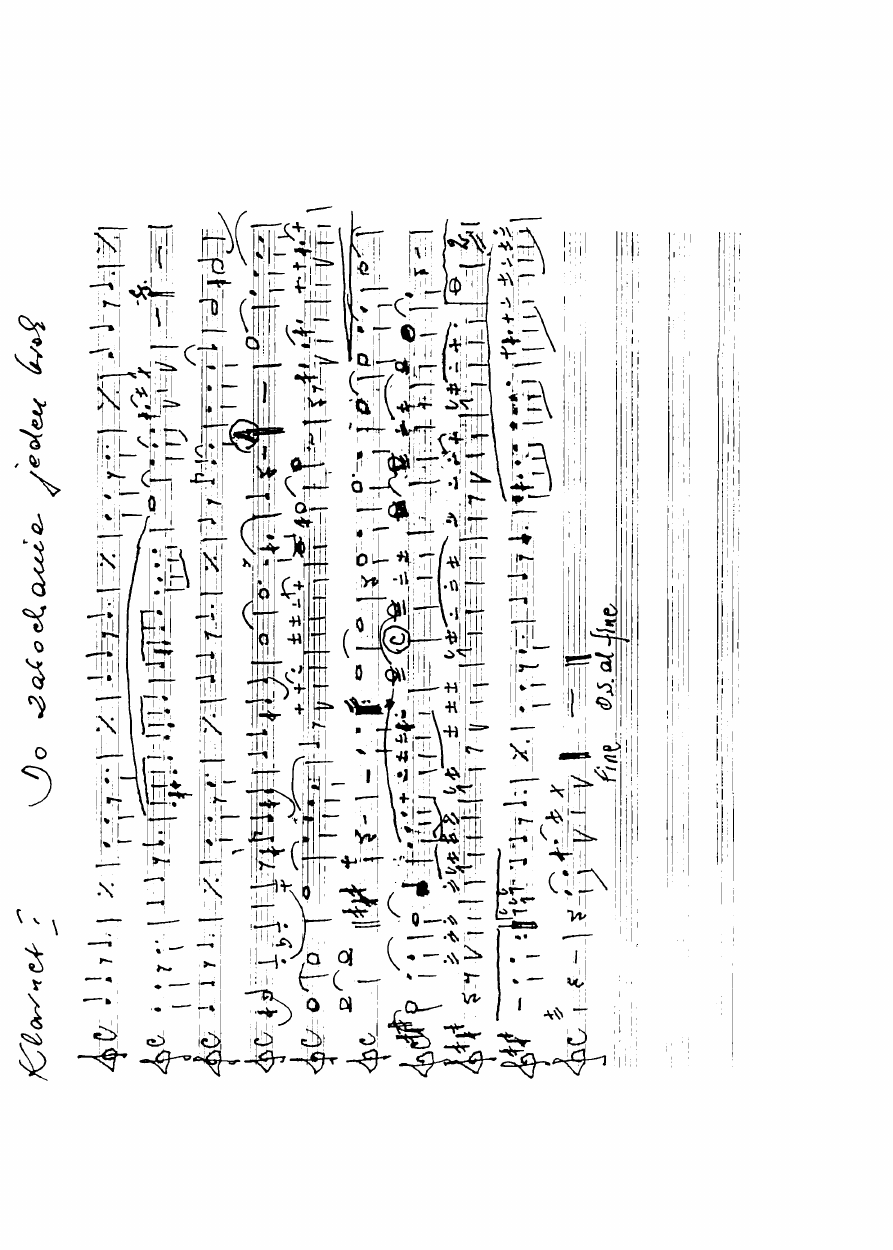 Klarnet: Do zakochania jeden krok
A
C
Fine D.S. al Fine